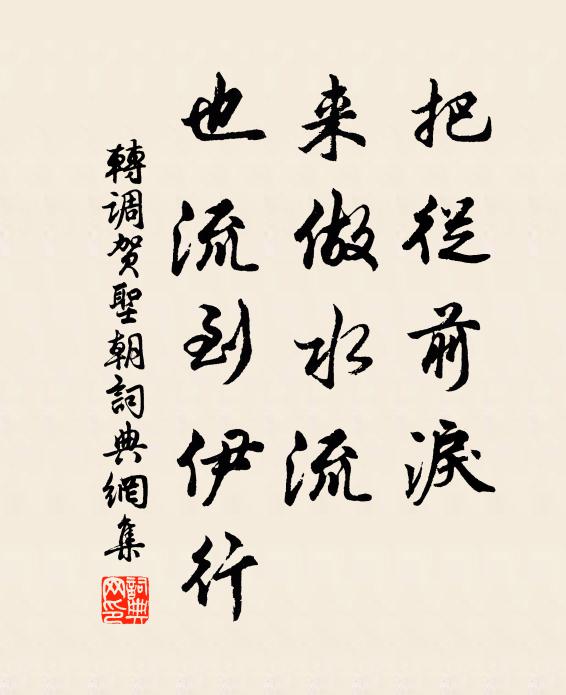 把從前淚
来做水流
也流到伊行
轉调贺聖朝詞典網集
詞典网印